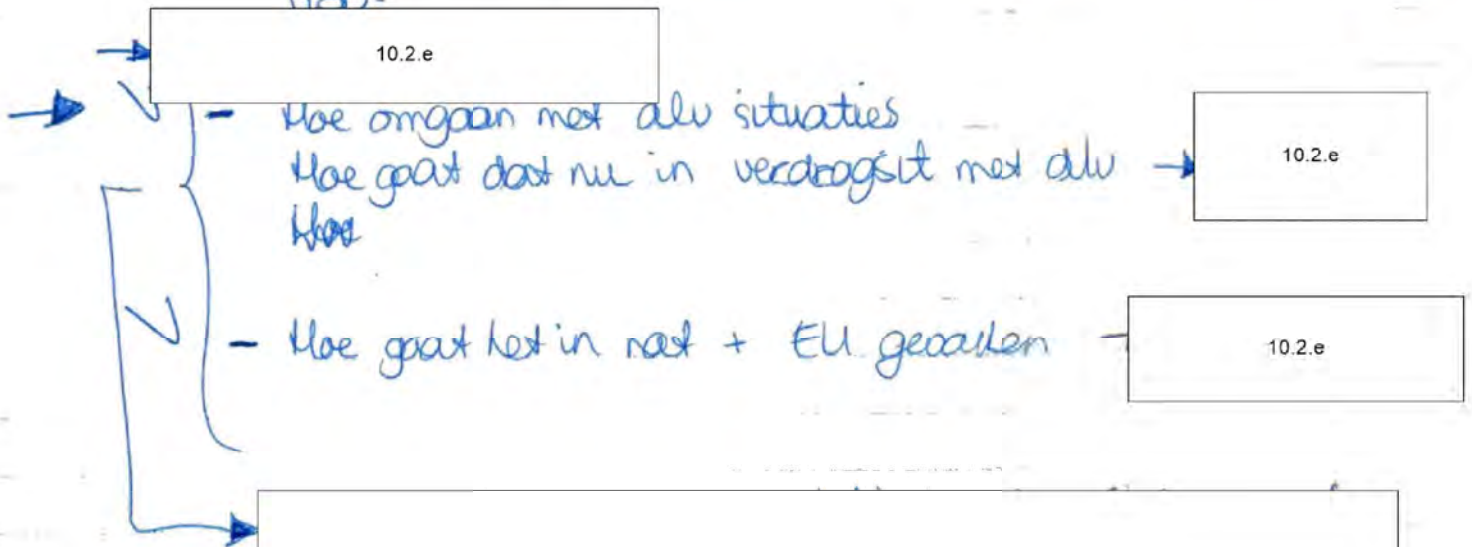 10.2.e
V - Hoe omgaan met alv situaties
Hoe gaat dat nu in verdragsit met alv → 10.2.e
Hoe
V - Hoe gaat het in nat + EU gevallen - 10.2.e